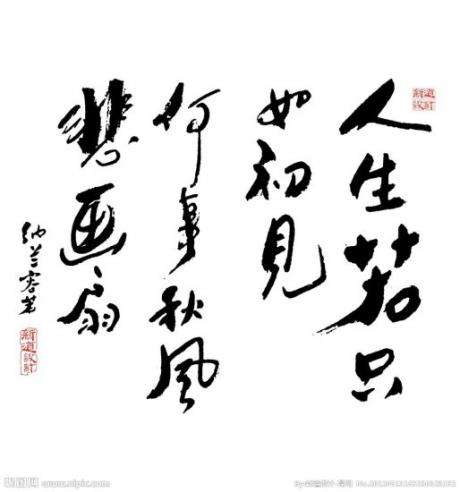 人生若只
如初見
何事秋風
悲画扇
纳兰容若
昵图网 www.nipic.com